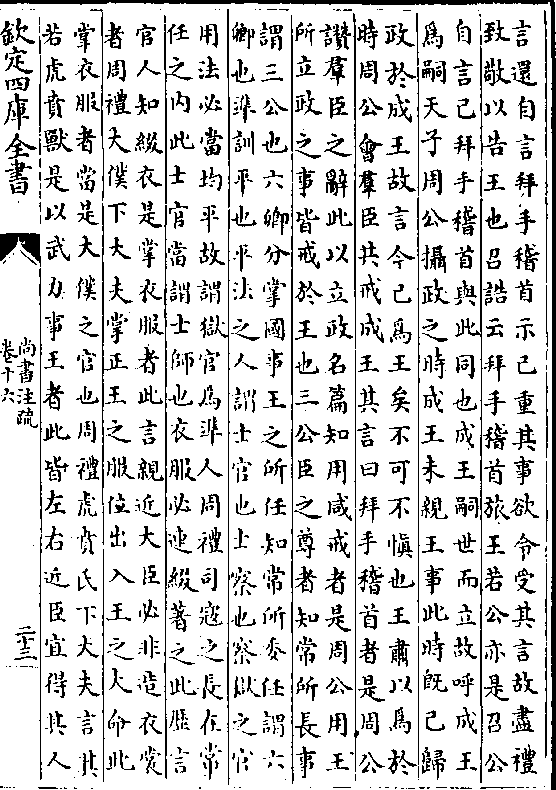 言還自言拜手稽首示己重其事欲令受其言故盡禮
致敬以告王也召誥云拜手稽首旅王若公亦是召公
自言己拜手稽首與此同也成王嗣世而立故呼成王
為嗣天子周公攝政之時成王未親王事此時既已歸
政於成王故言今已為王矣不可不慎也王肅以為於
時周公會羣臣共戒成王其言曰拜手稽首者是周公
讚羣臣之辭此以立政名篇知用咸戒者是周公用王
所立政之事皆戒於王也三公臣之尊者知常所長事
謂三公也六卿分掌國事王之所任知常所委任謂六
卿也準訓平也平法之人謂士官也士察也察獄之官
用法必當均平故謂獄官為準人周禮司寇之長在常
任之內此士官當謂士師也衣服必連綴著之此歷言
官人知綴衣是掌衣服者此言親近大臣必非造衣裳
者周禮大僕下大夫掌正王之服位出入王之大命此
掌衣服者當是大僕之官也周禮虎賁氏下大夫言其
若虎賁獸是以武力事王者此皆左右近臣宜得其人
欽定四庫全書
尚書注疏
卷十六
二十三